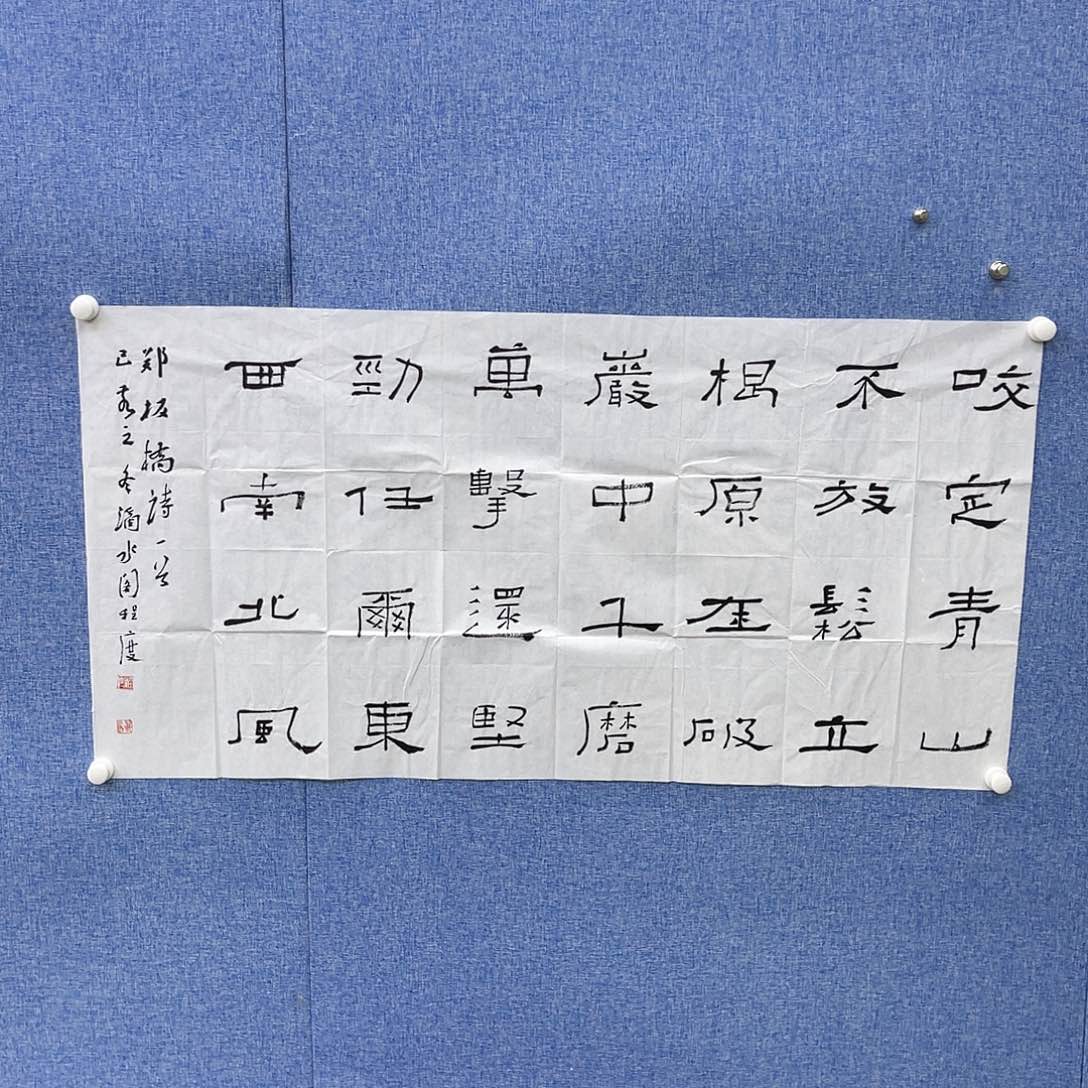 咬定青山
不放鬆立
根原在破
巖中千磨
萬擊還堅
勁任爾東
西南北風
郑板橋詩一首
己亥之冬滴水阁程度